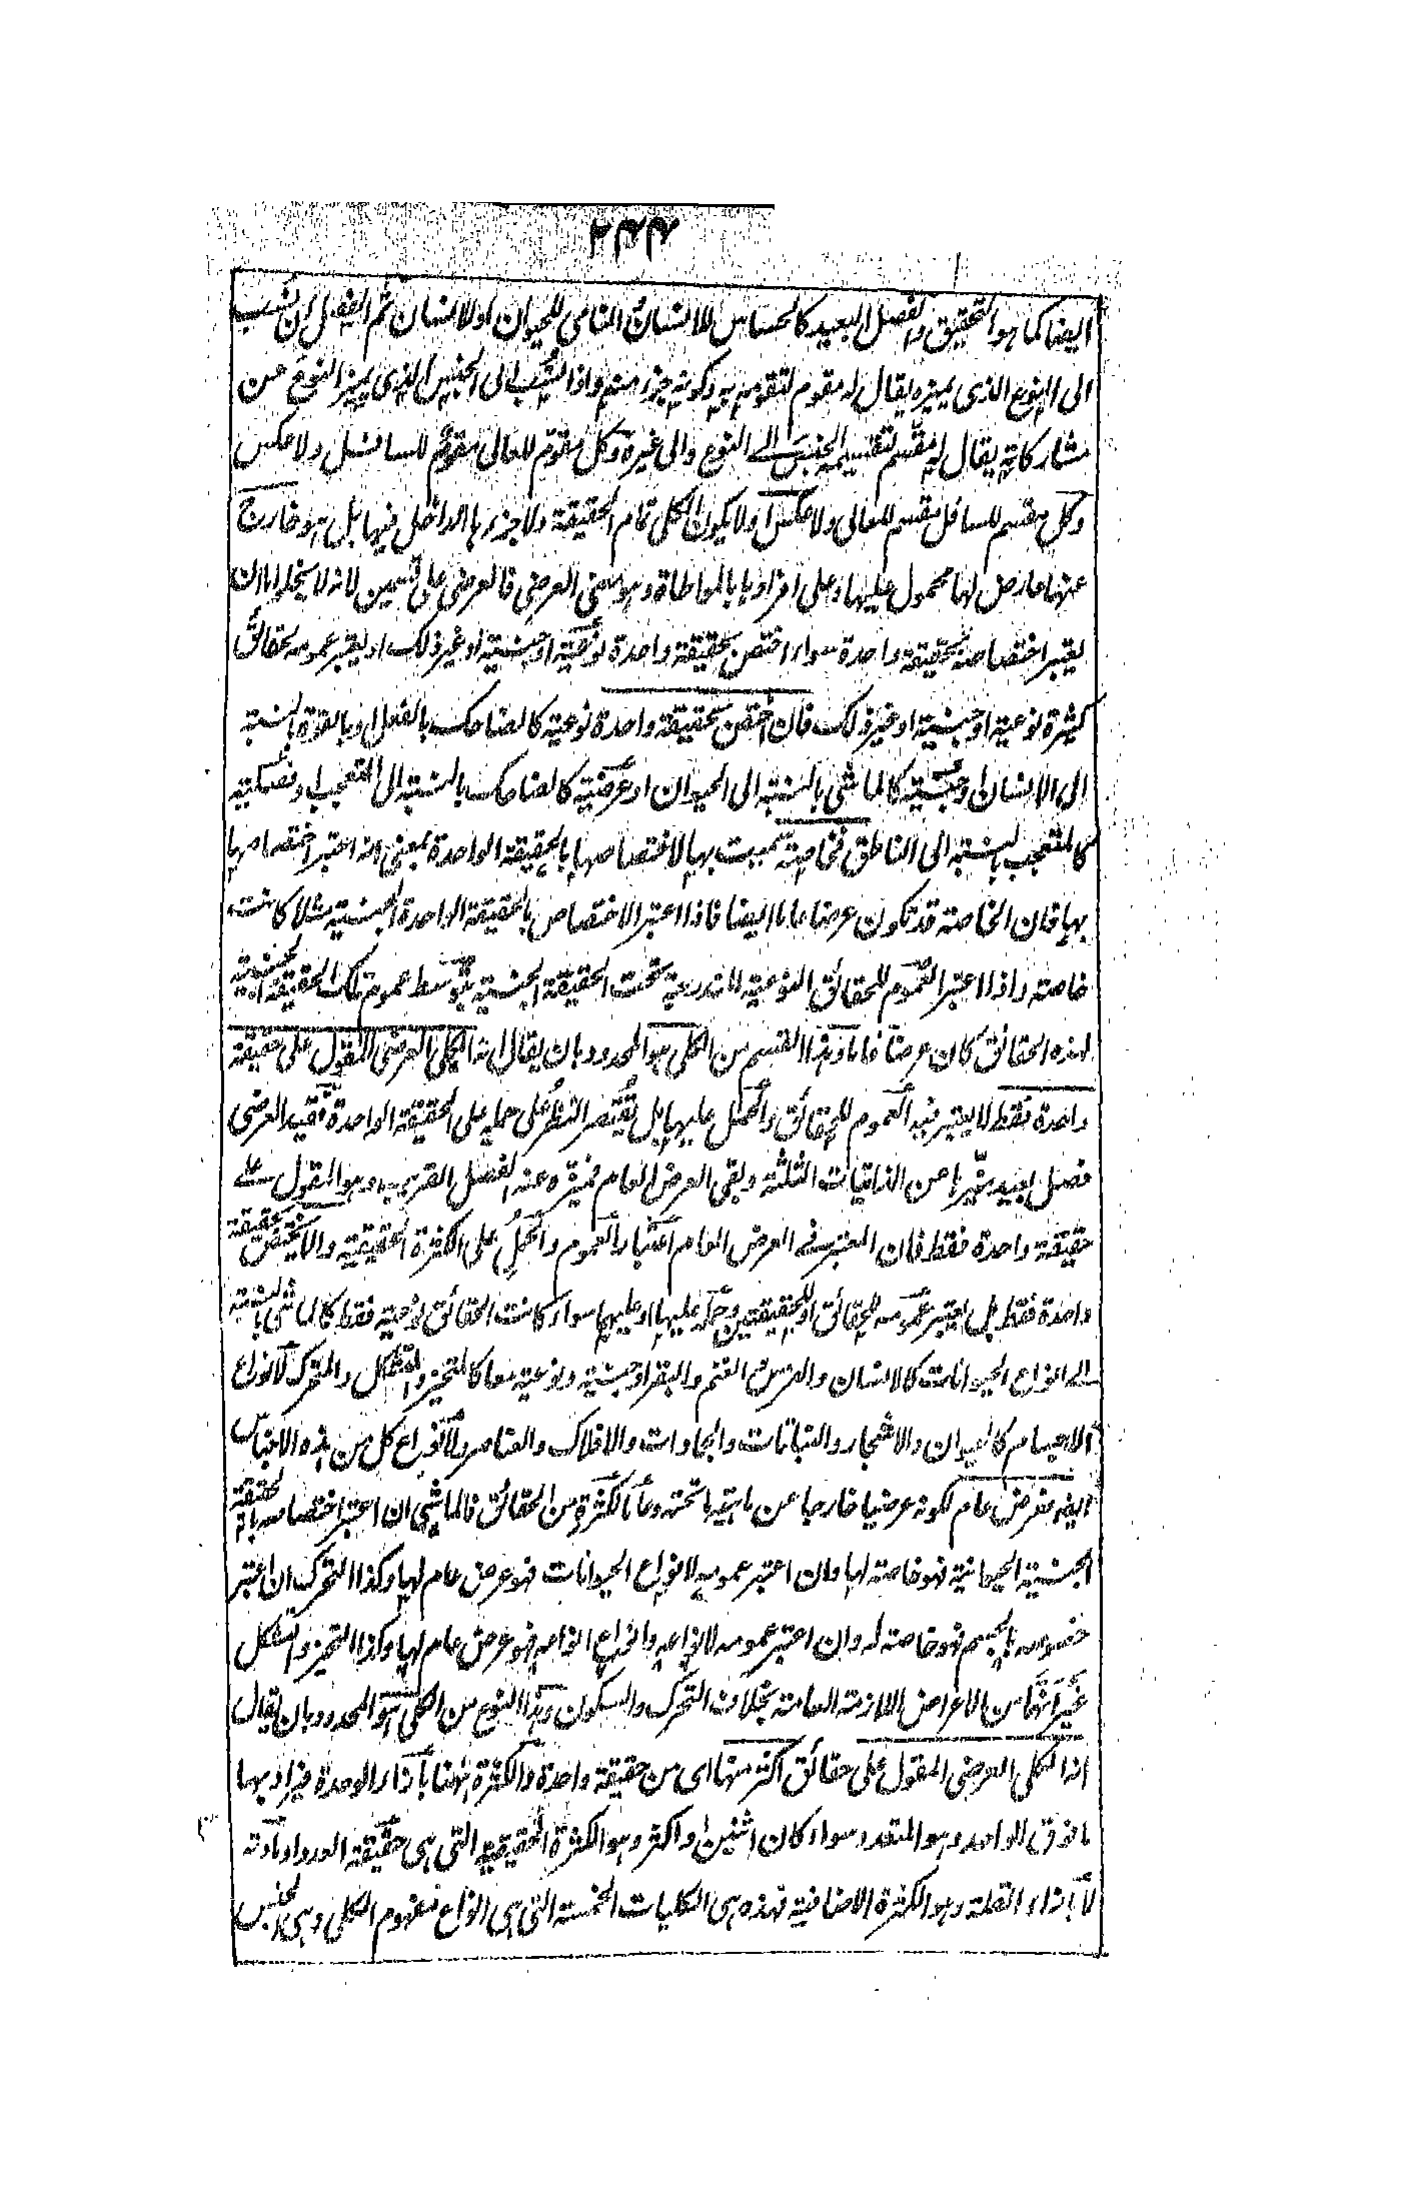 ۲۴۴
ايضا كما هو التحقيق والفصل البعيد كالحساس للانسان والنامى للحيوان او للانسان ثم الفصل ان نسب
الى النوع الذى يميزه يقال له مقوم لتقومه به وكونه جزء منه واذا نسب الى الجنس الذى يميز النوع عن
مشاركاته يقال له مقسم لتقسيمه الجنس الے النوع والى غيره وكل مقوم للعالى مقوم للسافل ولا عكس
وكل مقسم للسافل مقسم للعالى ولا عكس اولا يكون الكلى تمام الحقيقة ولا جزءها الداخل فيها بل هو خارج
عنها عارض لها محمول عليها وعلى افرادها بالمواطاة وهو معنى العرضى فالعرضى على قسمين لانه لا يخلو اما ان
يعتبر اختصاصه بحقيقة واحدة سواء اختص بحقيقة واحدة نوعية او جنسية او غير ذلك او يعتبر عمومه لحقائق
كثيرة نوعية او جنسية او غير ذلك فان اختص بحقيقة واحدة نوعية كالضاحك بالفعل او بالقوة بالنسبة
الى الانسان او جنسية كالماشى بالنسبة الى الحيوان او عرضية كالضاحك بالنسبة الى المتعجب او فصلية
كالمتعجب بالنسبة الى الناطق فخاصة سميت بها لاختصاصها بالحقيقة الواحدة بمعنى انه اعتبر اختصاصها
بها فان الخاصة قد تكون عرضا عاما ايضا فاذا اعتبر الاختصاص بالحقيقة الواحدة الجنسية مثلا كانت
خاصة واذا اعتبر العموم للحقائق النوعية المندرجة تحت الحقيقة الجنسية بتوسط عموم تلك الحقيقة الجنسية
لهذه الحقائق كان عرضا عاما وهذا القسم من الكلى هو المحدود بان يقال انه الكلى العرضى المقول على حقيقة
واحدة فقط لا يعتبر فيه العموم للحقائق والحمل عليها بل يقتصر النظر على حمله على الحقيقة الواحدة فقيد العرضى
فصل بعيد يميزها عن الذاتيات الثلثة وبقى العرض العام فميزه عنه الفصل القريب وهو المقول على
حقيقة واحدة فقط فان المعتبر فے العرض العام اعتبار العموم والحمل على الكثرة الحقيقية والا يختص بحقيقة
واحدة فقط بل يعتبر عمومه للحقائق او للحقيقتين وحمله عليها او عليهما سواء كانت الحقائق نوعية فقط كالماشى بالنسبة
الے انواع الحيوانات كالانسان والفرس والغنم والبقر او جنسية ونوعية معا كالمتحيز والمتشكل والمتحرك لانواع
الاجسام كالحيوان والاشجار والنباتات والجمادات والافلاك والعناصر ولانواع كل من هذه الاجناس
ايضا فعرض عام لكونه عرضيا خارجا عن ماهية ما تحته وعاما لكثرة من الحقائق فالماشى ان اعتبر اختصاصه بالحقيقة
الجنسية الحيوانية فهو خاصة لها وان اعتبر عمومه لانواع الحيوانات فهو عرض عام لها وكذا المتحرك ان اعتبر
خصوصه بالجسم فهو خاصة له وان اعتبر عمومه لانواعه وانواع انواعه فهو عرض عام لها وكذا المتحيز والمتشكل
غير انهما من الاعراض اللازمة العامة بخلاف التحرك والسكون وهذا النوع من الكلى هو المحدود بان يقال
انه الكلى العرضى المقول على حقائق اكثر منها اى من حقيقة واحدة والكثرة ههنا بازاء الوحدة فيراد بها
ما فوق الواحد وهو المتعدد سواء كان اثنين او اكثر وهو الكثرة الحقيقية التى هى حقيقة العدد او مادته
لا بازاء القلة وهو الكثرة الاضافية فهذه هى الكليات الخمسة التى هى انواع مفهوم الكلى وهى الجنس